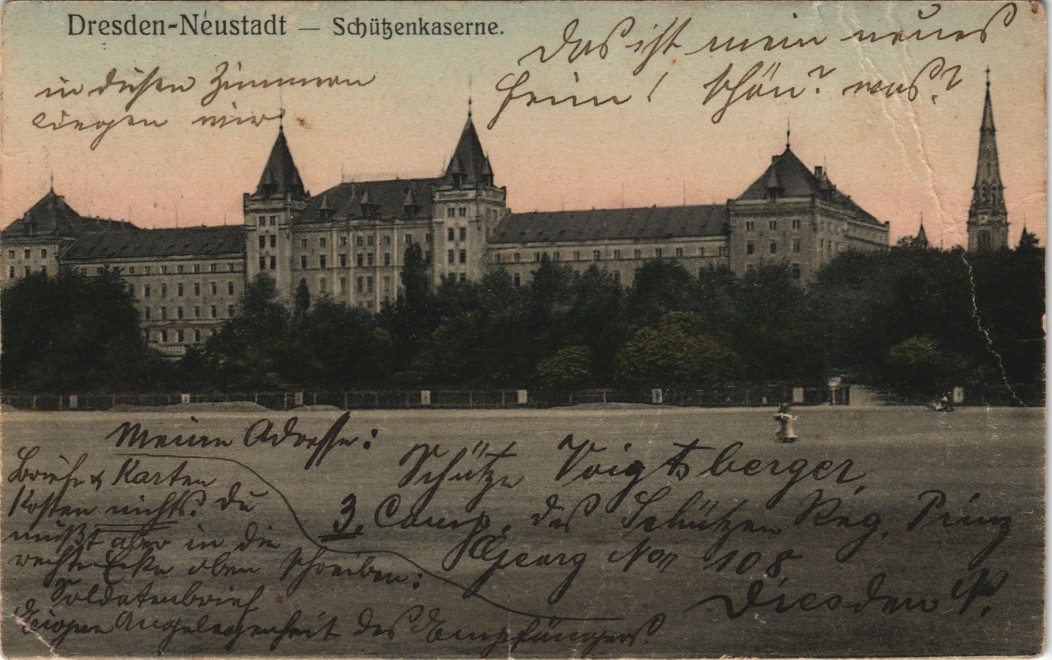 Dresden-Neustadt — Schützenkaserne.
Das ist mein neues
Heim! Schön? was?
in diesen Zimmern
liegen wir
Meine Adresse:
Schütze Voigtsberger,
3. Comp. des Schützen Reg. Prinz
Georg Nro 108
Dresden N.
Briefe & Karten
kosten nichts. Du
mußt aber in die
rechte Ecke oben schreiben:
Soldatenbrief
Eigene Angelegenheit des Empfängers.